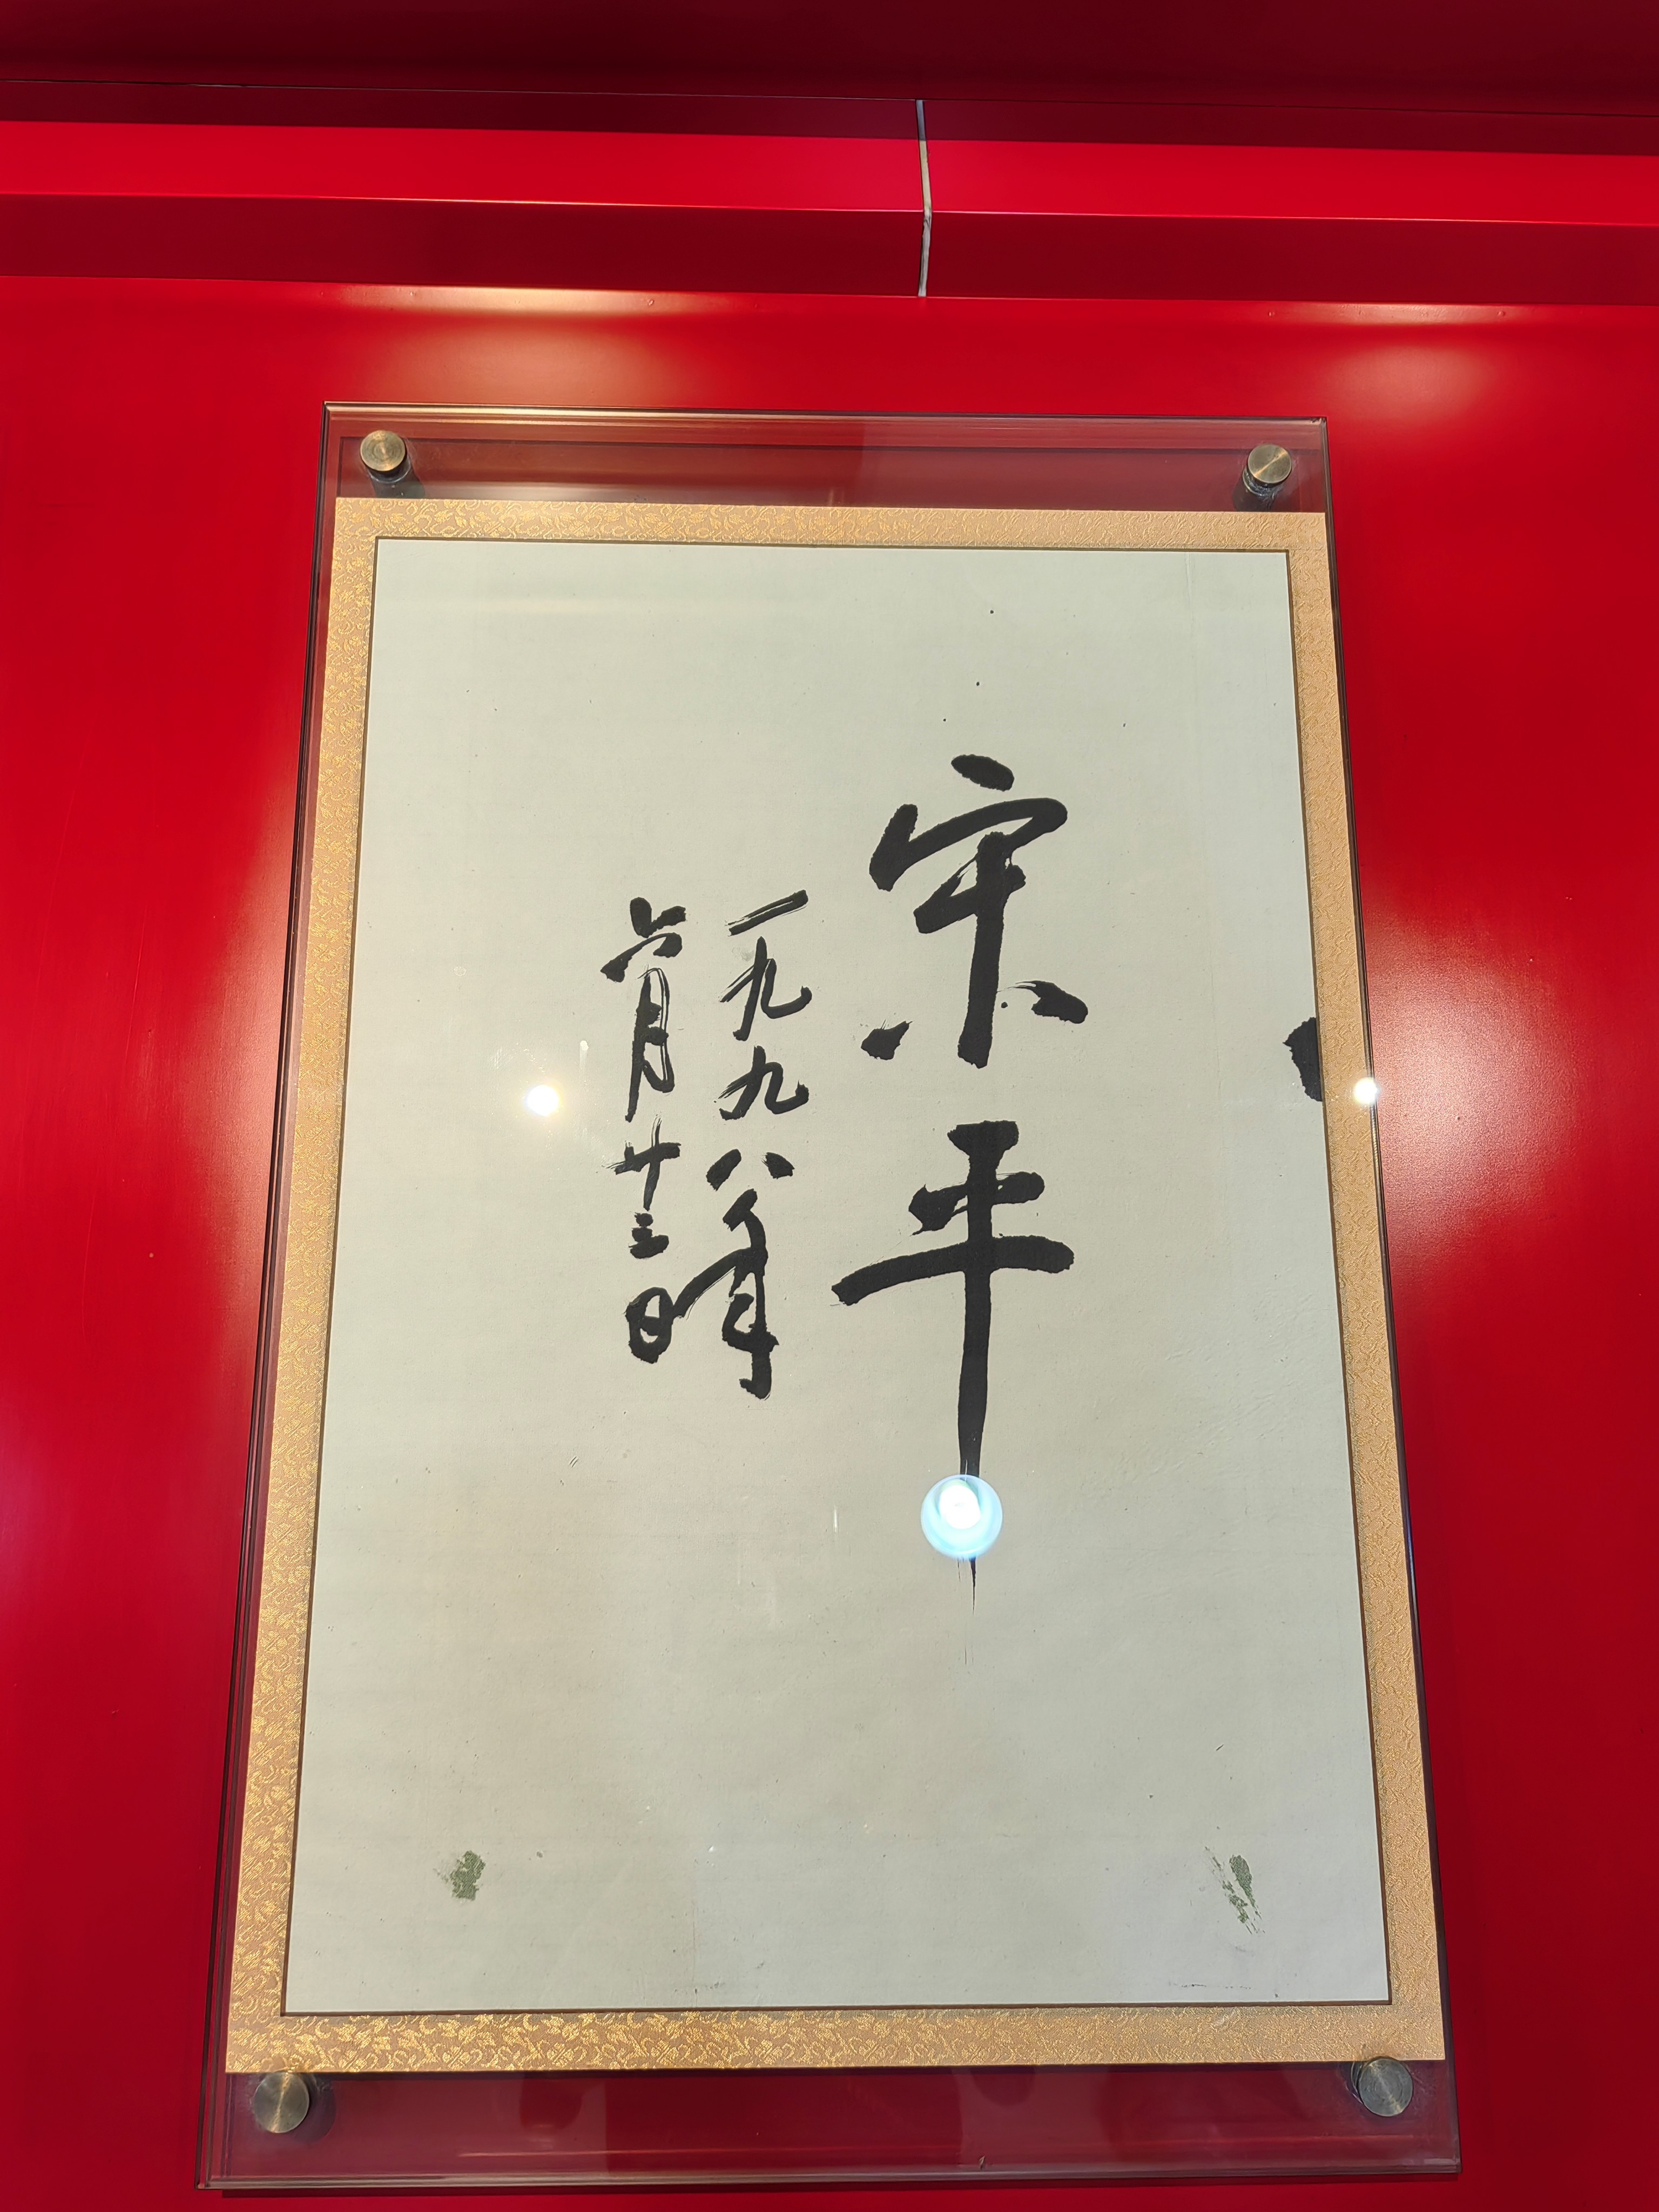 宋平
一九九八年
六月廿三日